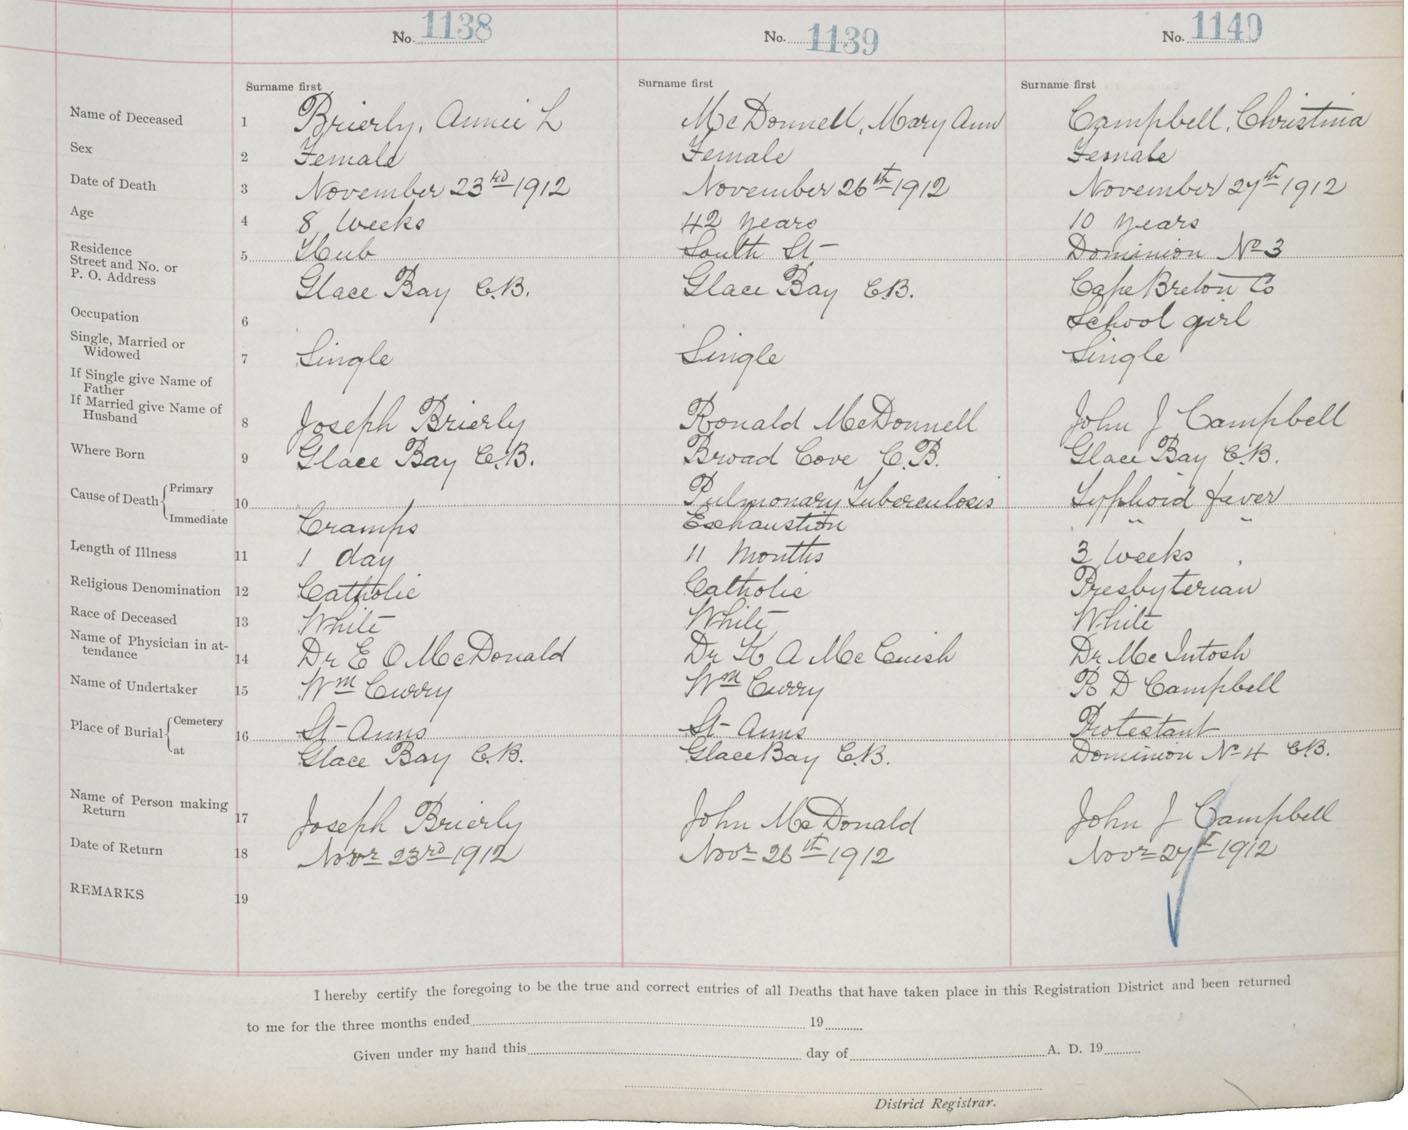 No. 1138 No. 1139 No. 1140
Surname first Surname first Surname first
Name of Deceased 1 Brierly, Annie L McDonnell, Mary Ann Campbell, Christina
Sex 2 Female Female Female
Date of Death 3 November 23rd 1912 November 26th 1912 November 27th 1912
Age 4 8 Weeks 42 years 10 years
Residence
Street and No. or 5 Hub South St Dominion No 3
P. O. Address Glace Bay C.B. Glace Bay C.B. Cape Breton Co
Occupation 6 School girl
Single, Married or
Widowed 7 Single Single Single
If Single give Name of
Father
If Married give Name of
Husband 8 Joseph Brierly Ronald McDonnell John J Campbell
Where Born 9 Glace Bay C.B. Broad Cove C.B. Glace Bay C.B.
Cause of Death { Primary 10 Pulmonary Tuberculosis Typhoid fever
Immediate Cramps Exhaustion " "
Length of Illness 11 1 day 11 Months 3 Weeks
Religious Denomination 12 Catholic Catholic Presbyterian
Race of Deceased 13 White White White
Name of Physician in at-
tendance 14 Dr E O McDonald Dr K A McCuish Dr McIntosh
Name of Undertaker 15 Wm Curry Wm Curry R D Campbell
Place of Burial { Cemetery 16 St Anns St Anns Protestant
at Glace Bay C.B. Glace Bay C.B. Dominion No 4 C.B.
Name of Person making
Return 17 Joseph Brierly John McDonald John J Campbell
Date of Return 18 Novr 23rd 1912 Novr 26th 1912 Novr 27th 1912
REMARKS 19
I hereby certify the foregoing to be the true and correct entries of all Deaths that have taken place in this Registration District and been returned
to me for the three months ended 19
Given under my hand this day of A. D. 19
District Registrar.